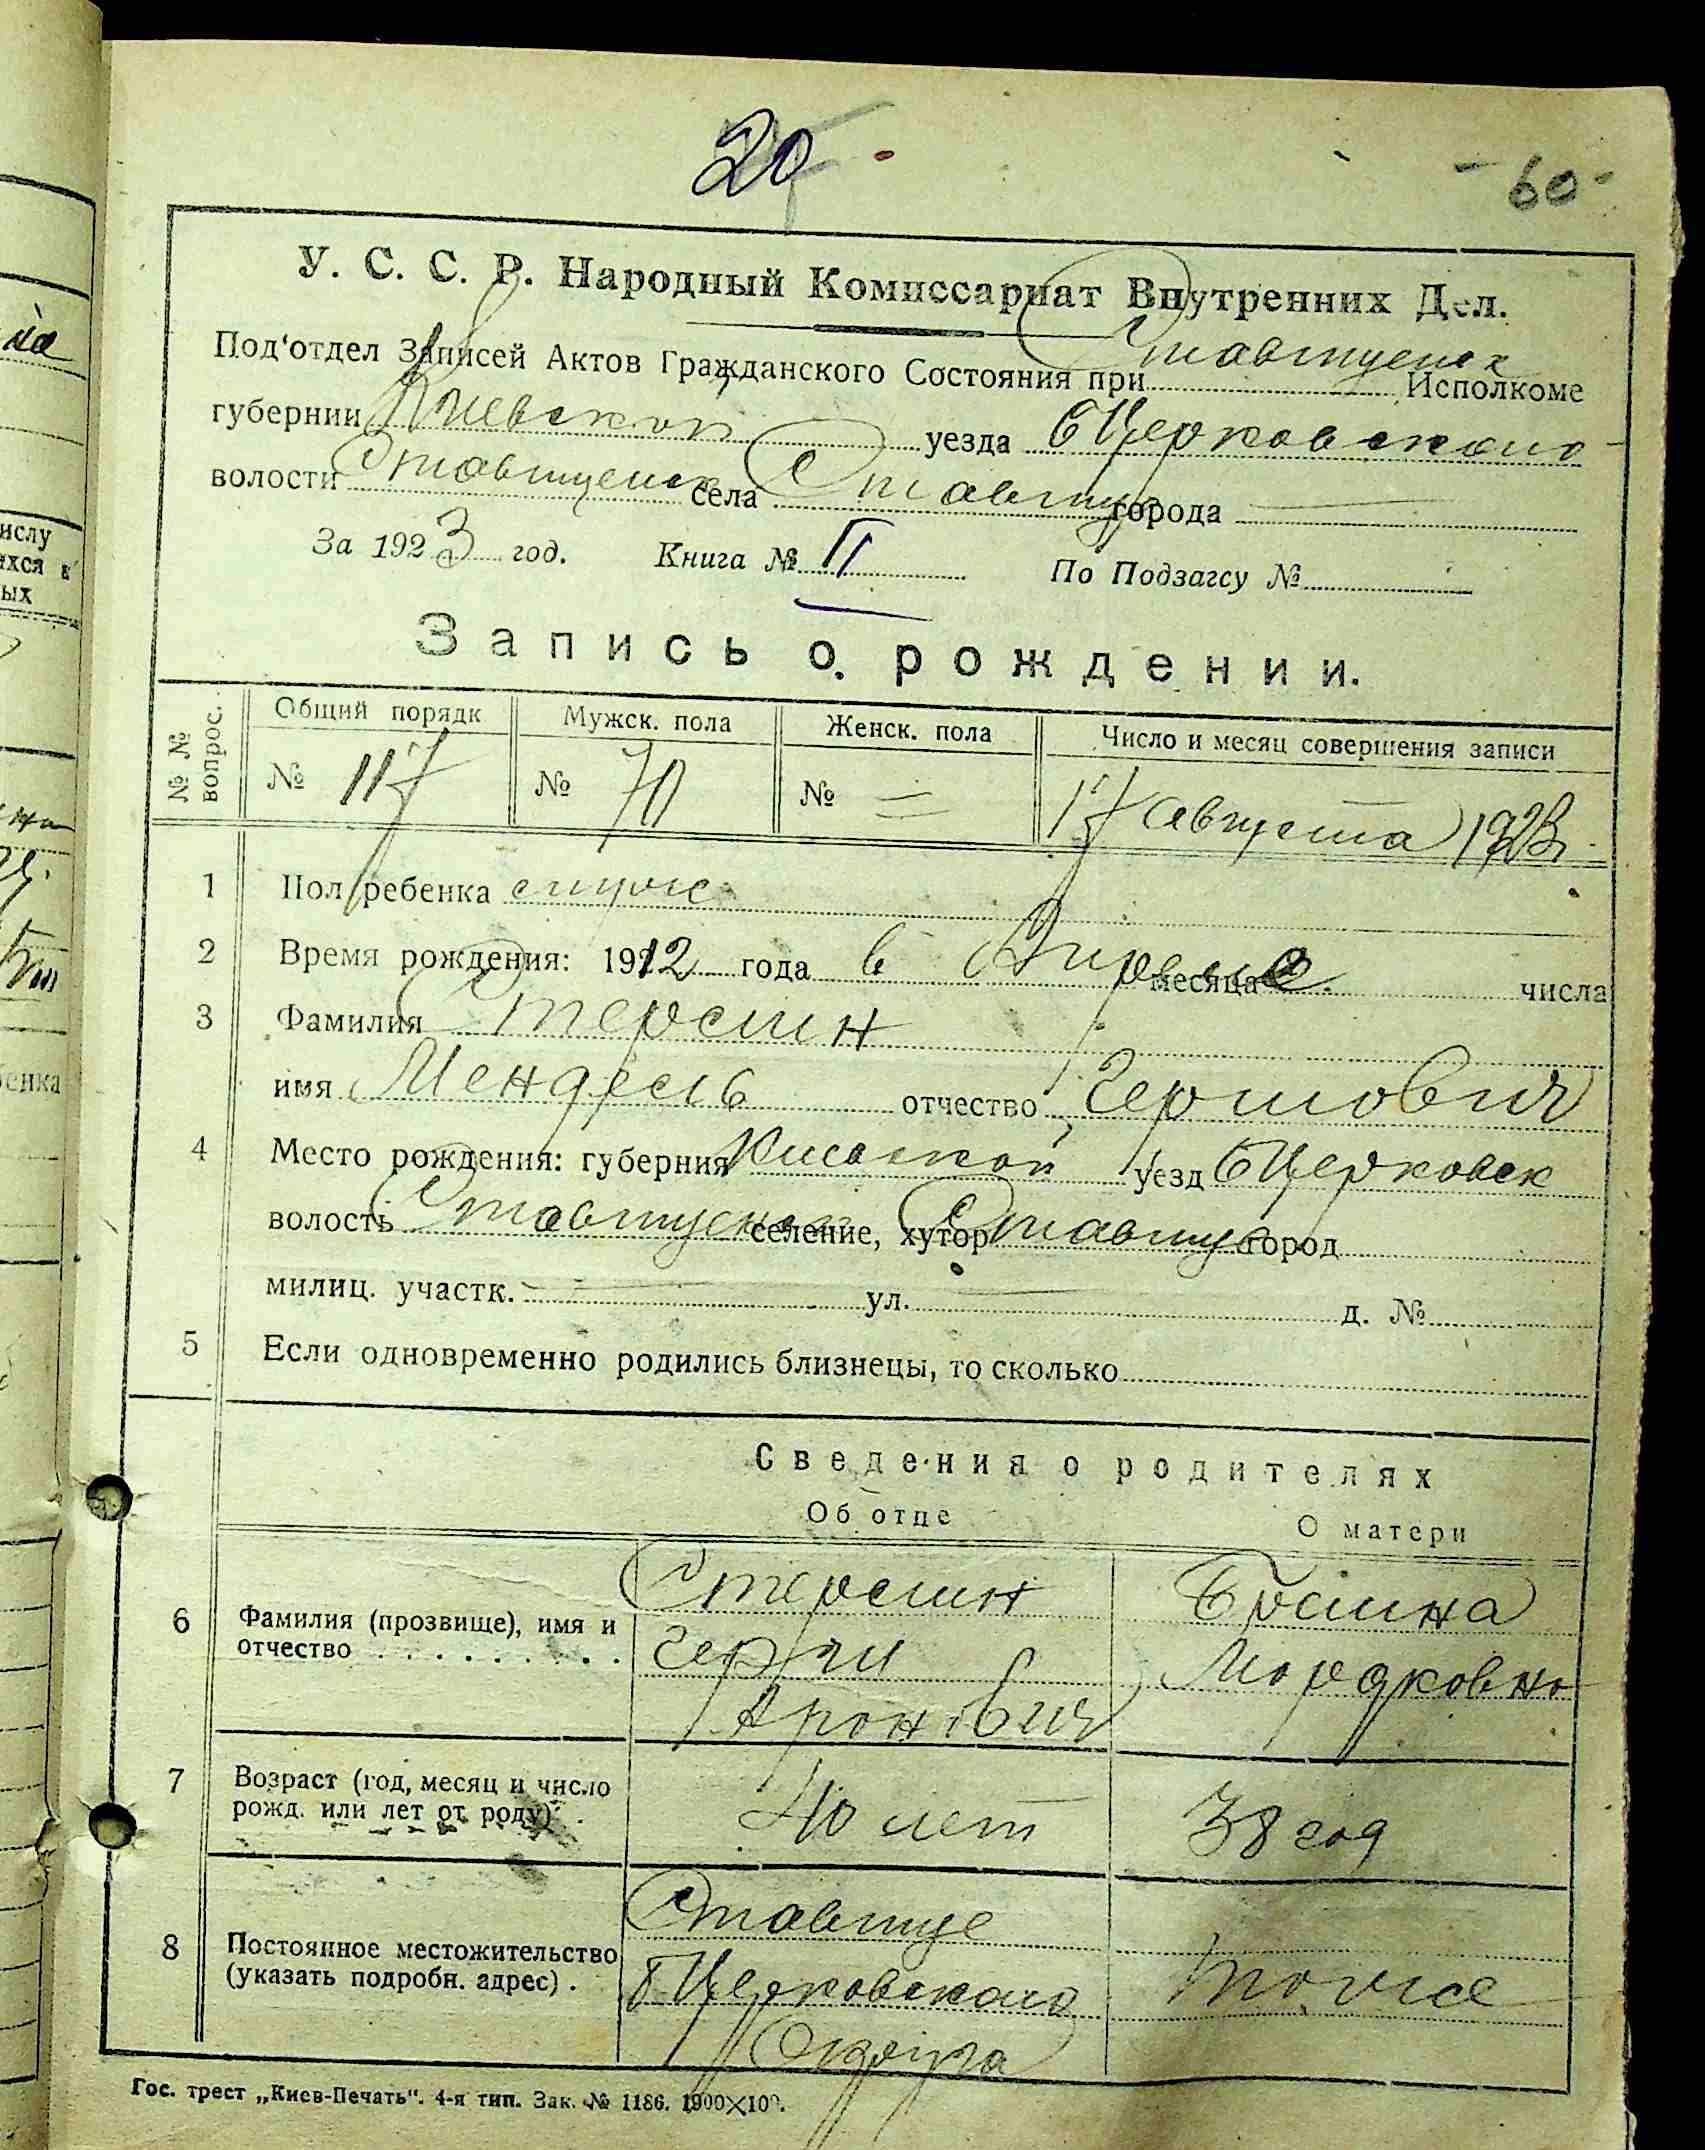 20
- 60 -
У. С. С. Р. Народный Комиссариат Внутренних Дел.
Под‘отдел Записей Актов Гражданского Состояния при Ставищенск Исполкоме
губернии Киевской уезда БЦерковского
волости Ставищенск села Ставищу города
За 1923 год. Книга № II По Подзагсу №
Запись о рождении.
№ № вопрос. Общий порядк Мужск. пола Женск. пола Число и месяц совершения записи
№ 117 № 70 № 17 августа 1923
1 Пол ребенка
2 Время рождения: 1912 года в месяца числа
3 Фамилия
имя Мендель отчество Гершович
4 Место рождения: губерния Киевской уезд БЦерковск
волость Ставищенск селение, хутор Ставище город
милиц. участк. ул. д. №
5 Если одновременно родились близнецы, то сколько
Сведения о родителях
Об отце О матери
6 Фамилия (прозвище), имя и отчество
Герш Мордковно
Аронович
7 Возраст (год, месяц и число рожд. или лет от роду) 40 лет 38 год
8 Постоянное местожительство (указать подробн. адрес) . Ставище
БЦерковского тоже
Округа
Гос. трест „Киев-Печать“. 4-я тип. Зак. № 1186. 1900×100.